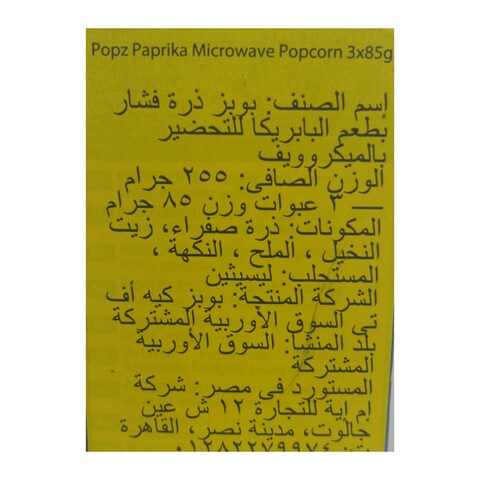 Popz Paprika Microwave Popcorn 3x85g
إسم الصنف: بوبز ذرة فشار
بطعم البابريكا للتحضير
بالميكروويف
الوزن الصافى: ٢٥٥ جرام
— ٣ عبوات وزن ٨٥ جرام
المكونات: ذرة صفراء، زيت
النخيل ، الملح ، النكهة ،
المستحلب: ليسيثين
الشركة المنتجة: بوبز كيه أف
تى السوق الأوربية المشتركة
بلد المنشأ: السوق الأوربية
المشتركة
المستورد فى مصر: شركة
إم إية للتجارة ١٢ ش عين
جالوت، مدينة نصر، القاهرة